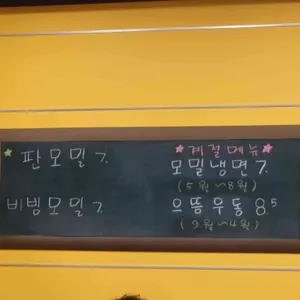 판모밀 7.
비빙모밀 7.
계절메뉴
모밀냉면 7.
(5월~8월)
으뜸우동 8.5
(9월~4월)